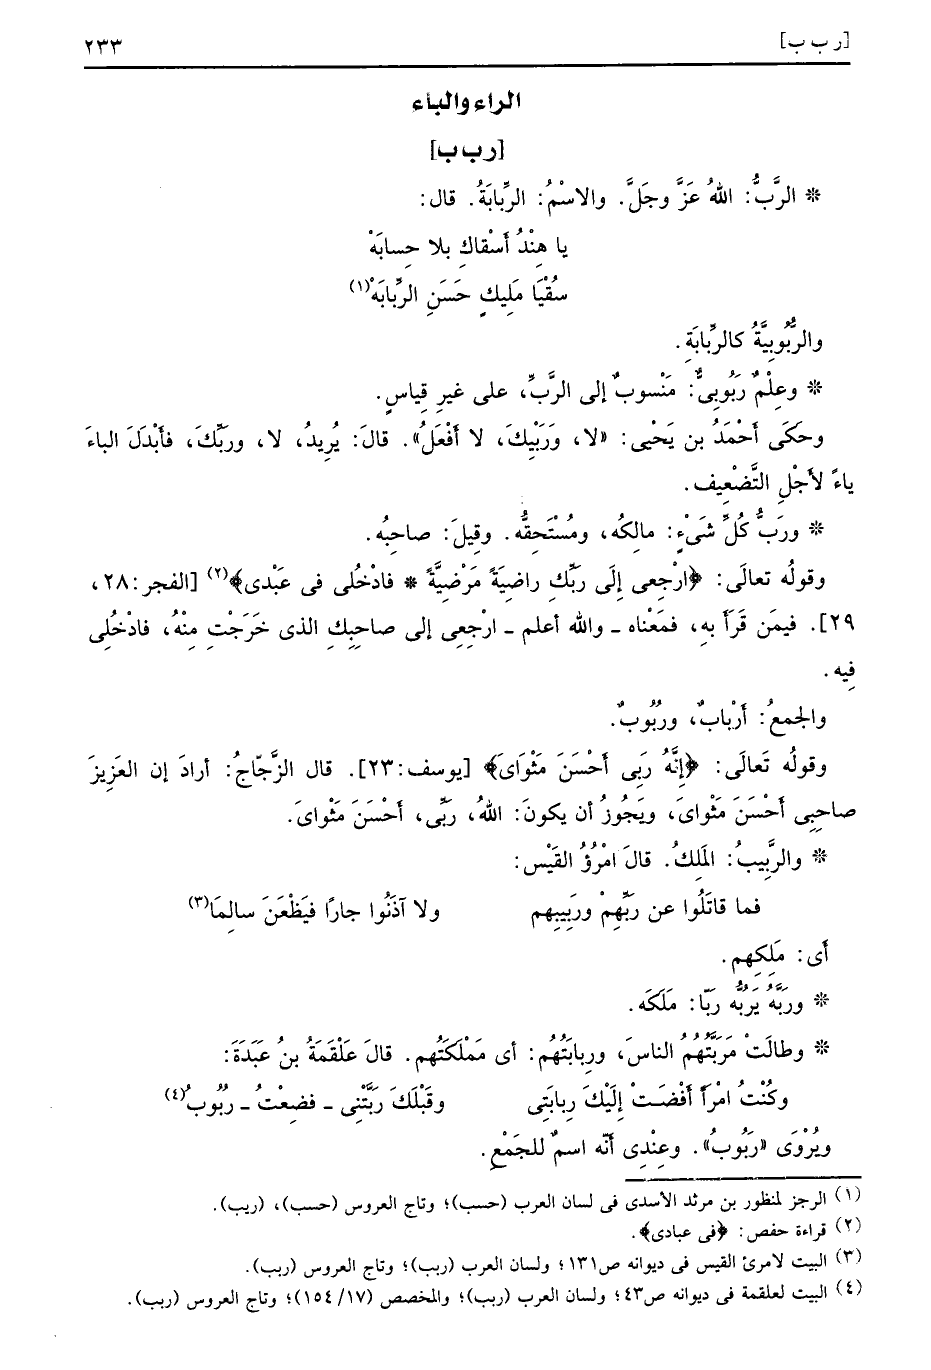 [ر ب ب] ٢٣٣
الراء والباء
[ر ب ب]
* الرَّبُّ: اللهُ عَزَّ وجَلَّ. والاسْمُ: الرِّبابَةُ. قال:
يا هِنْدُ أَسْقاكِ بلا حِسابَهْ
سُقْيَا مَلِيكٍ حَسَنِ الرِّبابَهْ(١)
والرُّبُوبِيَّةُ كالرِّبابَةِ.
* وعِلْمٌ رَبُوبِىٌّ: مَنْسوبٌ إلى الرَّبِّ، على غيرِ قِياسٍ.
وحَكَى أَحْمَدُ بن يَحْيى: «لا، وَرَبْيِكَ، لا أَفْعَلُ». قالَ: يُرِيدُ، لا، ورَبِّكَ، فأَبْدَلَ الباءَ
ياءً لأَجْلِ التَّضْعِيف.
* ورَبُّ كُلِّ شَىْءٍ: مالِكُه، ومُسْتَحِقُّه. وقِيلَ: صاحِبُه.
وقولُه تعالَى: ﴿ارْجِعِى إلَى رَبِّكِ راضِيَةً مَرْضِيَّةً * فادْخُلِى فى عَبْدِى﴾(٢) [الفجر: ٢٨،
٢٩]. فيمَن قَرَأَ بهِ، فمَعْناه ـ والله أعلم ـ ارْجِعِى إلى صاحِبِكِ الذى خَرَجْتِ مِنْهُ، فادْخُلِى
فِيه.
والجمعُ: أَرْبابٌ، ورُبُوبٌ.
وقولُه تَعالَى: ﴿إِنَّهُ رَبِى أَحْسَنَ مَثْوَاىَ﴾ [يوسف: ٢٣]. قال الزَّجّاجُ: أرادَ إن العَزِيزَ
صاحِبِى أَحْسَنَ مَثْواىَ، ويَجُوزُ أن يكونَ: اللهُ، رَبِّى، أَحْسَنَ مَثْواىَ.
* والرَّبِيبُ: المَلِكُ. قالَ امْرُؤُ القَيْس:
فما قاتَلُوا عن رَبِّهِمْ ورَبِيبِهم ولا آذَنُوا جارًا فيَظْعَنَ سالِمَا(٣)
أى: مَلِكِهم.
* ورَبَّهُ يَرُبُّه رَبّا: مَلَكَه.
* وطالَتْ مَرَبَّتُهُمُ الناسَ، ورِبابَتُهُم: أى مَمْلَكَتُهم. قالَ عَلْقَمَةُ بنُ عَبَدَةَ:
وكُنْتُ امْرَأً أَفْضَتْ إلَيْكَ رِبابَتِى وقَبْلَكَ رَبَّتْنِى ـ فضِعْتُ ـ رُبُوبُ(٤)
ويُرْوَى «رَبُوبُ». وعِنْدِى أنّه اسمٌ للجَمْعِ.
(١) الرجز لمنظور بن مرثد الأسدى فى لسان العرب (حسب)؛ وتاج العروس (حسب)، (ريب).
(٢) قراءة حفص: ﴿فى عبادى﴾.
(٣) البيت لامرئ القيس فى ديوانه ص١٣١؛ ولسان العرب (ربب)؛ وتاج العروس (ربب).
(٤) البيت لعلقمة فى ديوانه ص٤٣؛ ولسان العرب (ربب)؛ والمخصص (١٧/ ١٥٤)؛ وتاج العروس (ربب).